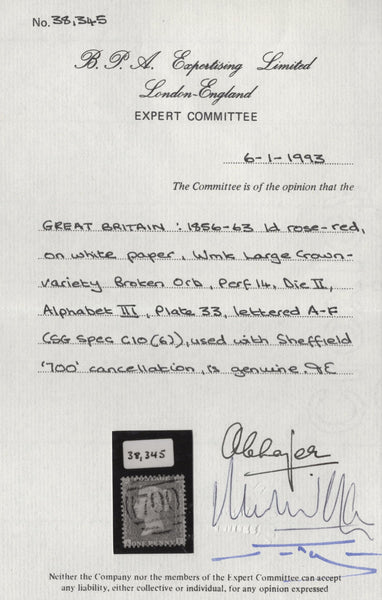 No. 38,345
B. P. A. Expertising Limited
London-England
EXPERT COMMITTEE
6-1-1993
The Committee is of the opinion that the
GREAT BRITAIN : 1856-63 1d rose-red,
on white paper, Wmk Large Crown-
variety Broken Orb, Perf 14, Die II,
Alphabet III, Plate 33, lettered A-F
(SG Spec C10(6)), used with Sheffield
'700' cancellation, is genuine.
38,345
700
ONE PENNY
Neither the Company nor the members of the Expert Committee can accept
any liability, either collective or individual, for any opinion expressed